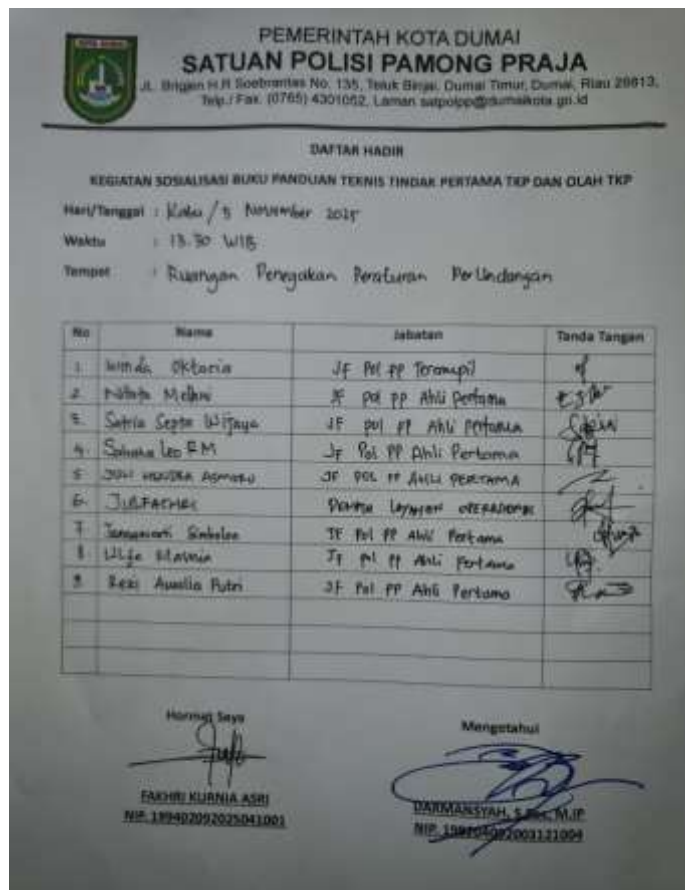 KOTA DUMAI
PEMERINTAH KOTA DUMAI
SATUAN POLISI PAMONG PRAJA
JL. Brigjen H.R Soebrantas No. 135, Teluk Binjai, Dumai Timur, Dumai, Riau 28813,
Telp./ Fax. (0765) 4301052, Laman satpolpp@dumaikota.go.id
DAFTAR HADIR
KEGIATAN SOSIALISASI BUKU PANDUAN TEKNIS TINDAK PERTAMA TKP DAN OLAH TKP
Hari/Tanggal : Rabu / 5 November 2025
Waktu : 13.30 WIB
Tempat : Ruangan Penegakan Peraturan Per Undangan
No Nama Jabatan Tanda Tangan
1 Winda Oktaria JF Pol PP Terampil
2. Melani JF pol PP Ahli Pertama
3. Satria Septa Wijaya JF pol PP Ahli Pertama
4. Leo RM JF Pol PP Ahli Pertama
5 HENDRA ASMORO JF POL PP AHLI PERTAMA
6. LAYANAN OPERASIONAL
7 JF Pol PP Ahli Pertama
8 JF pol PP Ahli Pertama
9. Rezi Aurelia Putri JF Pol PP Ahli Pertama
Hormat Saya
Mengetahui
FAKHRI KURNIA ASRI
NIP. 199402092025041001
DARMANSYAH, M.IP